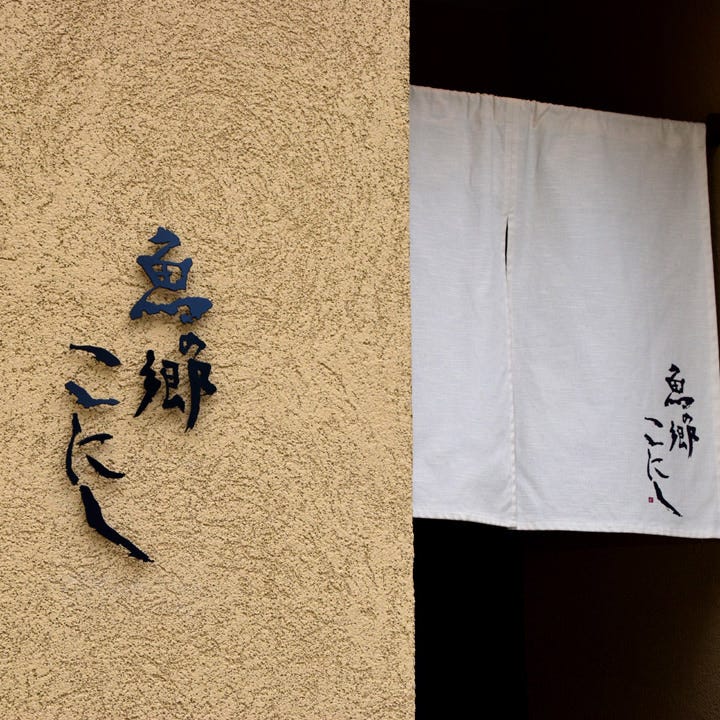 魚の郷
こにし
魚の郷
こにし